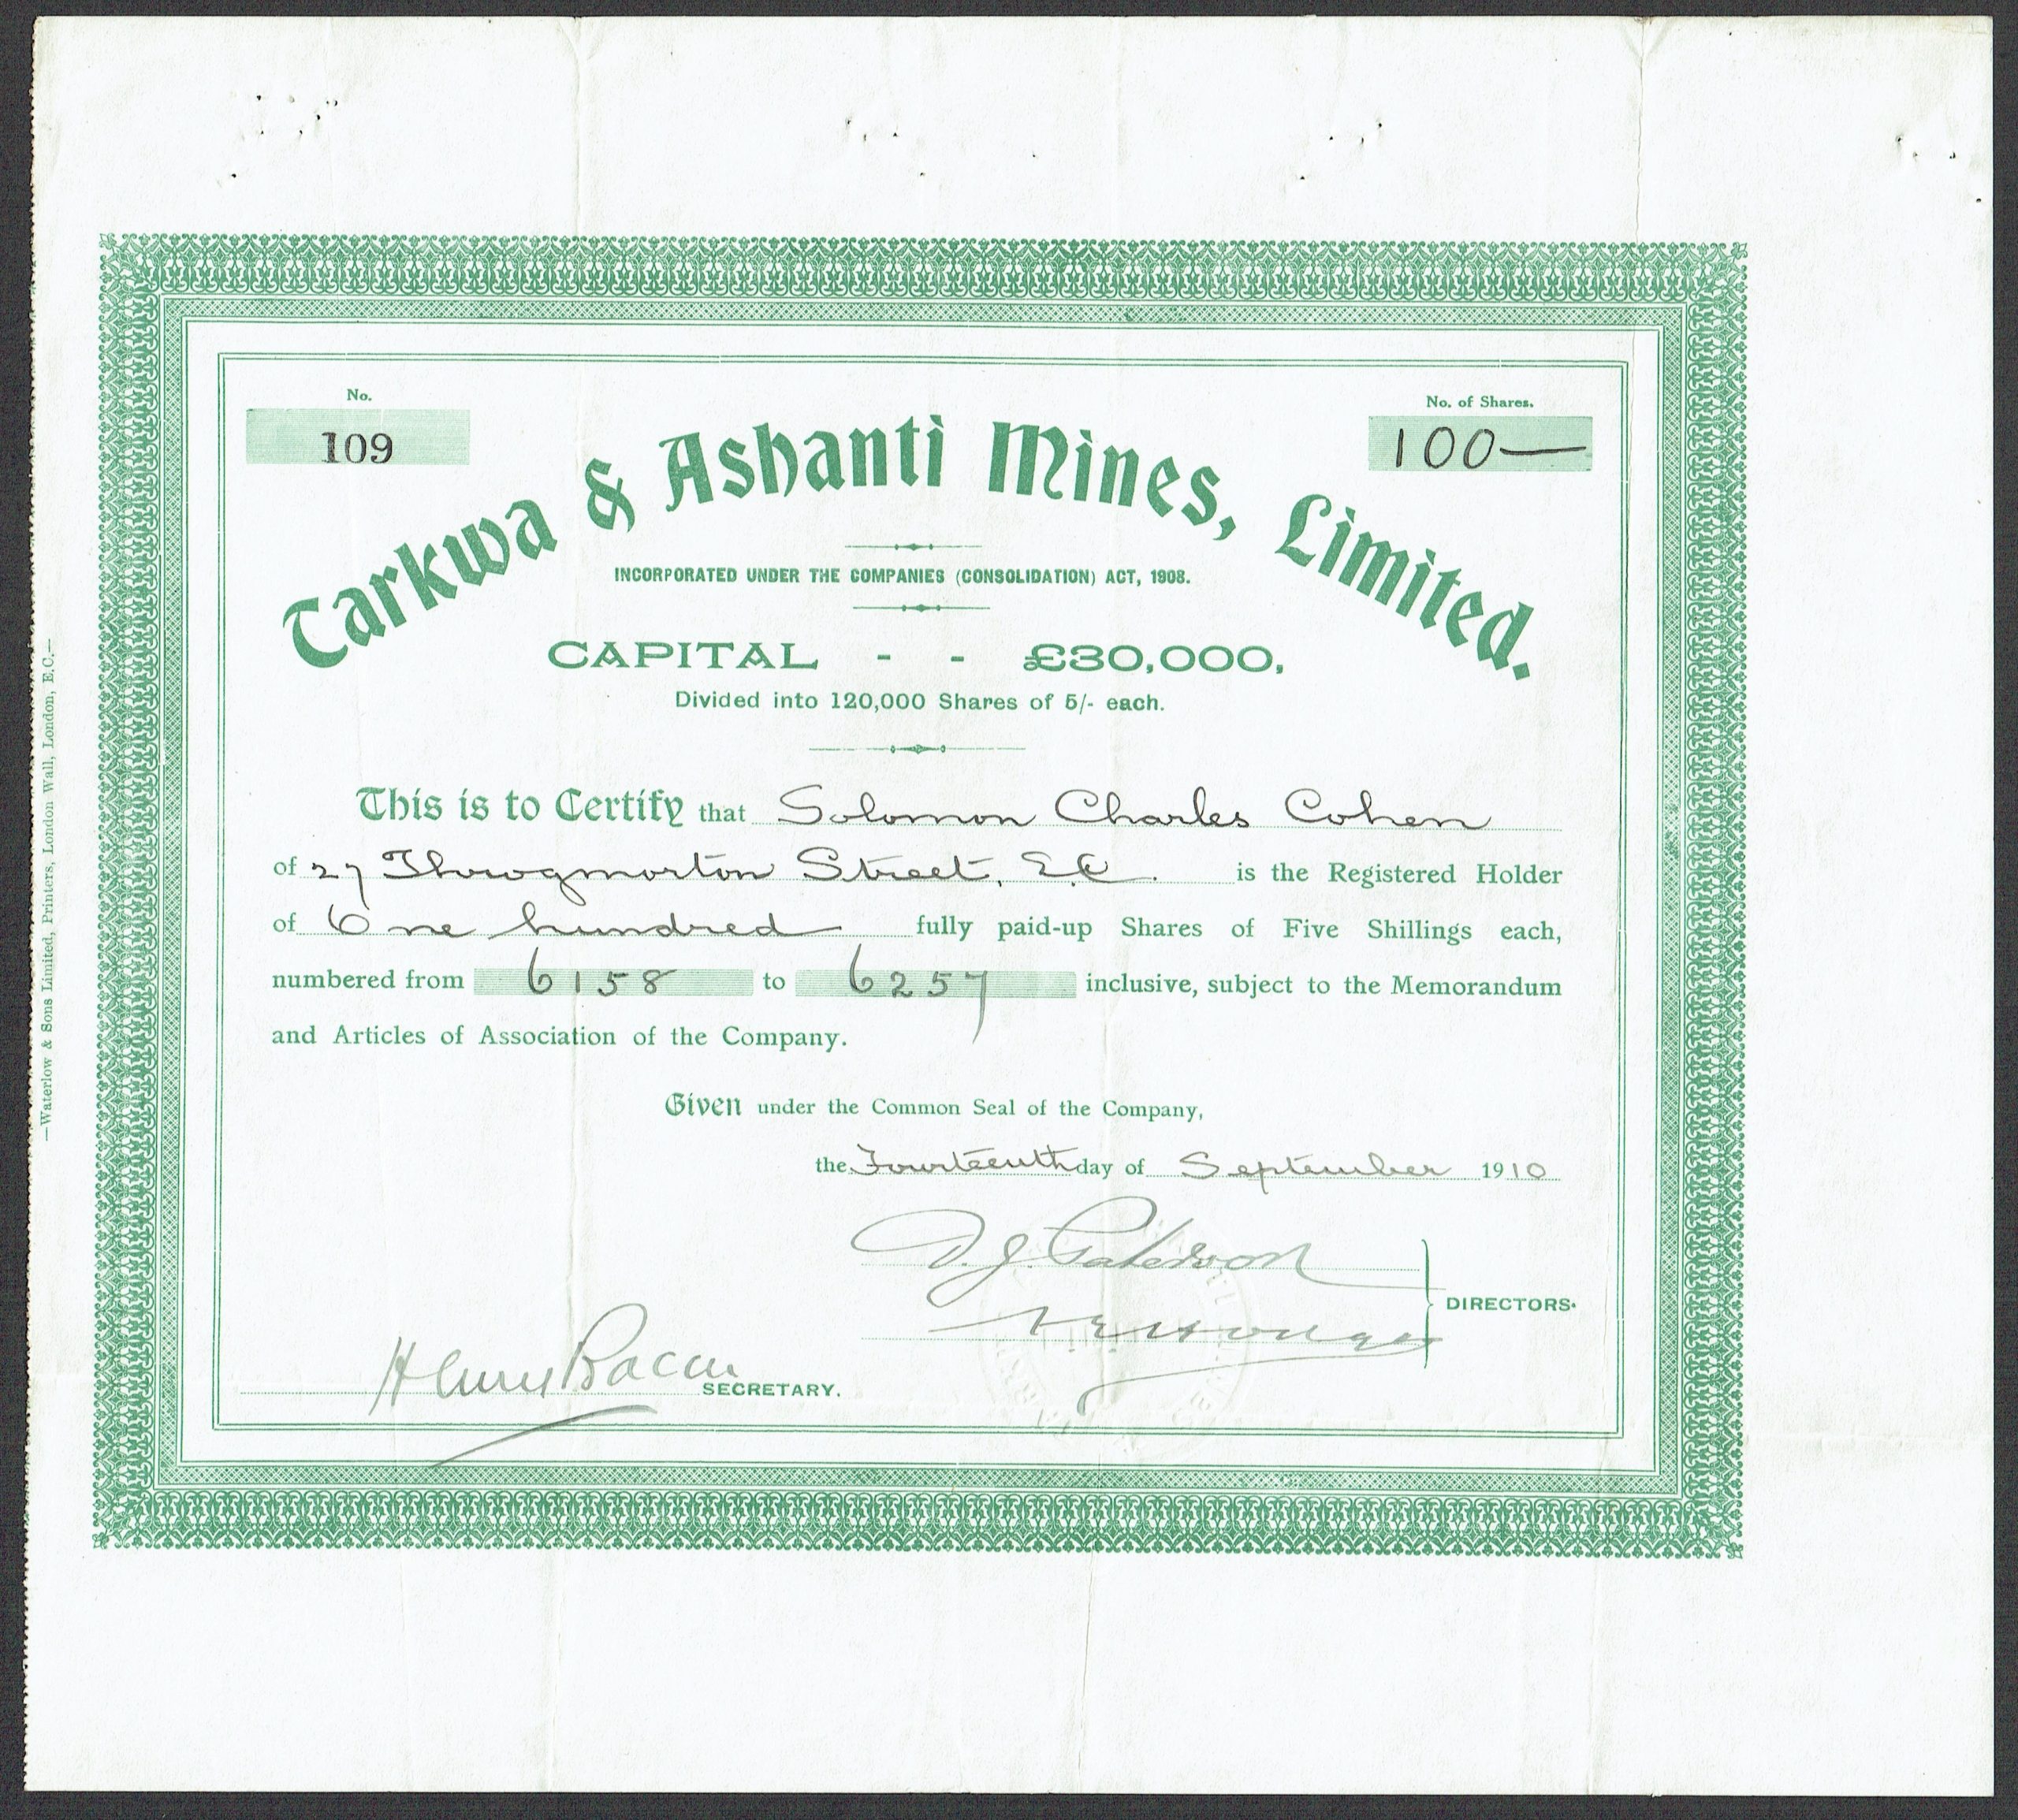 No.
109
No. of Shares.
100—
Tarkwa & Ashanti Mines, Limited.
INCORPORATED UNDER THE COMPANIES (CONSOLIDATION) ACT, 1908.
CAPITAL - - £30,000,
Divided into 120,000 Shares of 5/- each.
This is to Certify that Solomon Charles Cohen
of 27 Throgmorton Street, E.C. is the Registered Holder
of One hundred fully paid-up Shares of Five Shillings each,
numbered from 6158 to 6257 inclusive, subject to the Memorandum
and Articles of Association of the Company.
Given under the Common Seal of the Company,
the Fourteenth day of September 1910
D. J. Paterson
DIRECTORS.
Henry Bacon
SECRETARY.
—Waterlow & Sons Limited, Printers, London Wall, London, E.C.—